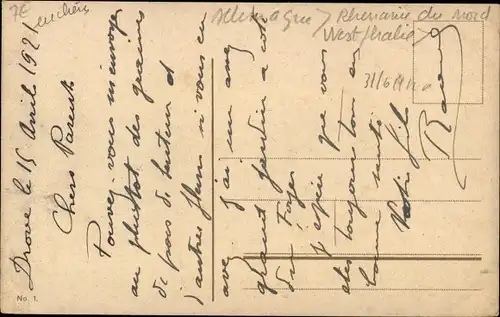 7€
Allemagne / Rhenanie du Nord
Westphalie
31/6/14
Drove le 15 Avril 1921
Chers Parents
Pouvez vous m'envoyer
au plutot des graines
de pois de senteur et
d'autres fleurs si vous en
avez. J'ai un
grand jardin a coté
du Foyer
J'espère que vous
etes toujours tous en
bonne santé
Votre fils
No. 1.